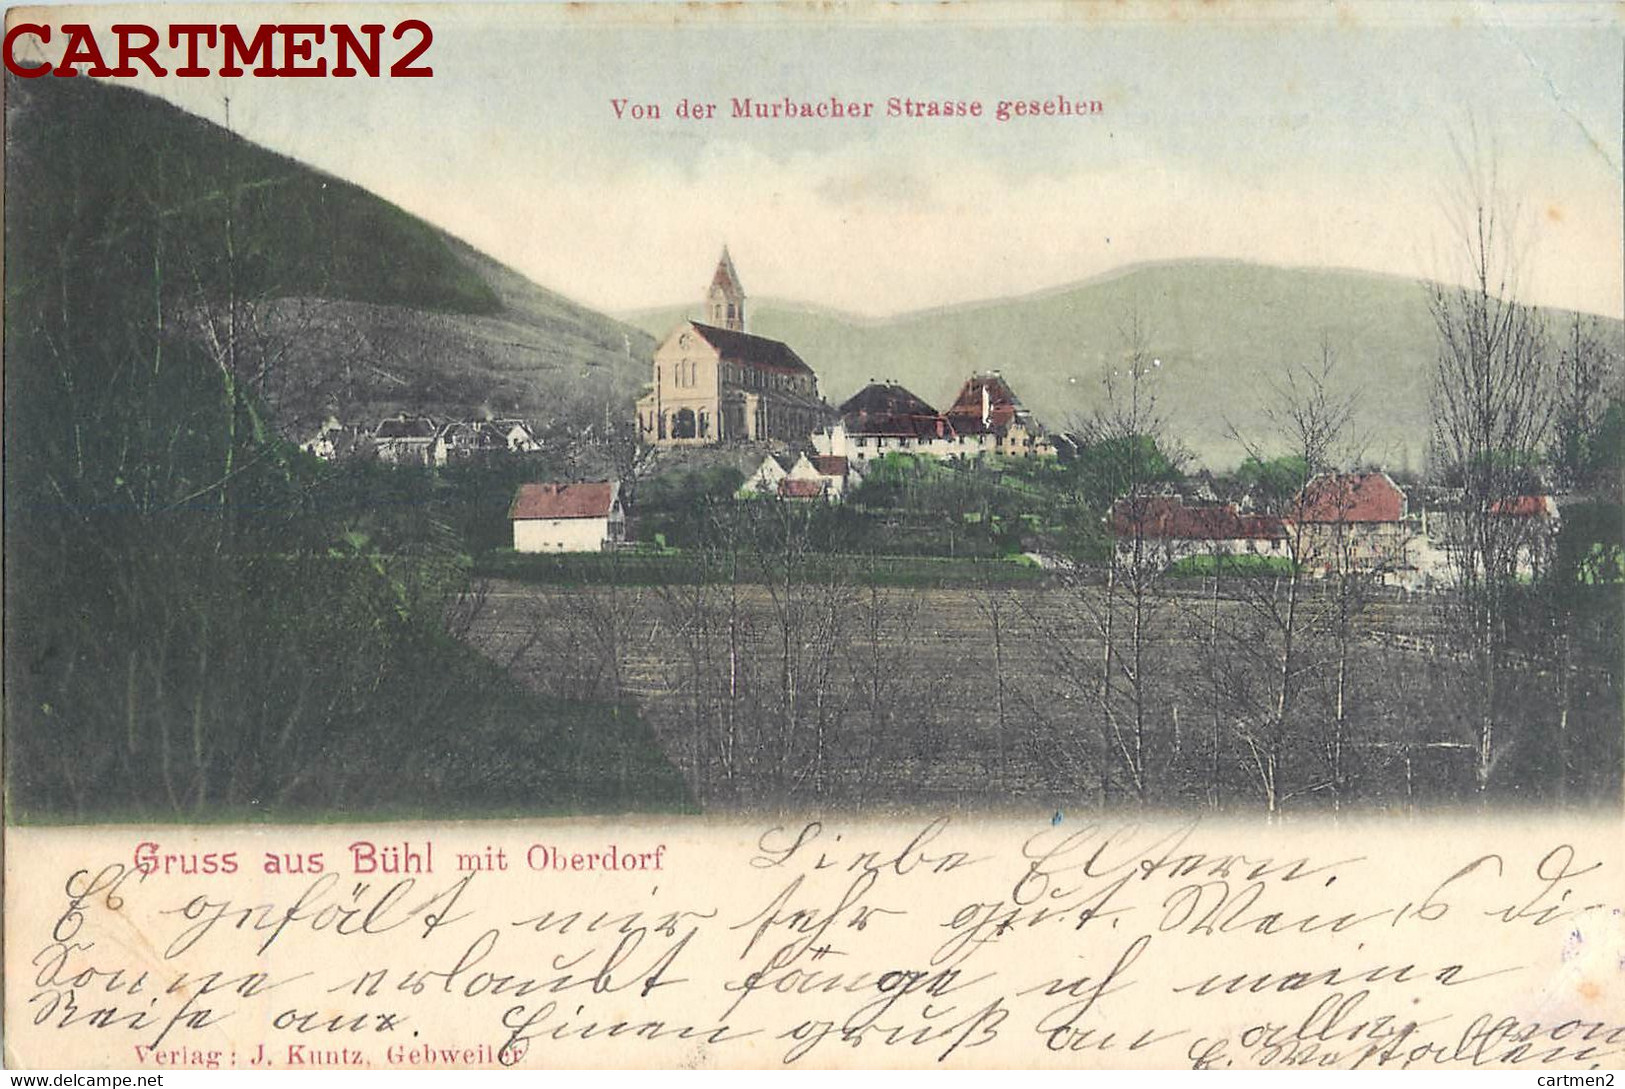 CARTMEN2
Von der Murbacher Strasse gesehen
Gruss aus Bühl mit Oberdorf
Liebe Eltern,
Es gefält mir sehr gut. Wen s di
Sonne erlaubt fänge ich meine
Reise an. Einen gruß an allen von
Verlag: J. Kuntz, Gebweiler
delcampe.net
cartmen2